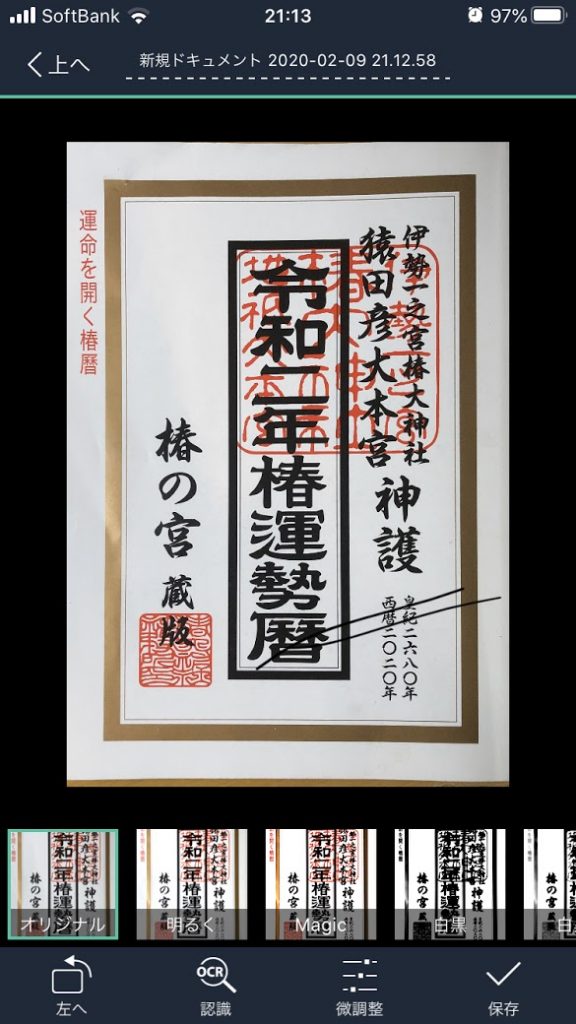 SoftBank
21:13
97%
上へ
新規ドキュメント 2020-02-09 21.12.58
運命を開く椿暦
伊勢一之宮椿大神社
猿田彦大本宮 神護
皇紀二六八〇年
西暦二〇二〇年
令和二年椿運勢暦
椿の宮 蔵版
オリジナル
明るく
Magic
白黒
左へ
OCR
認識
微調整
保存